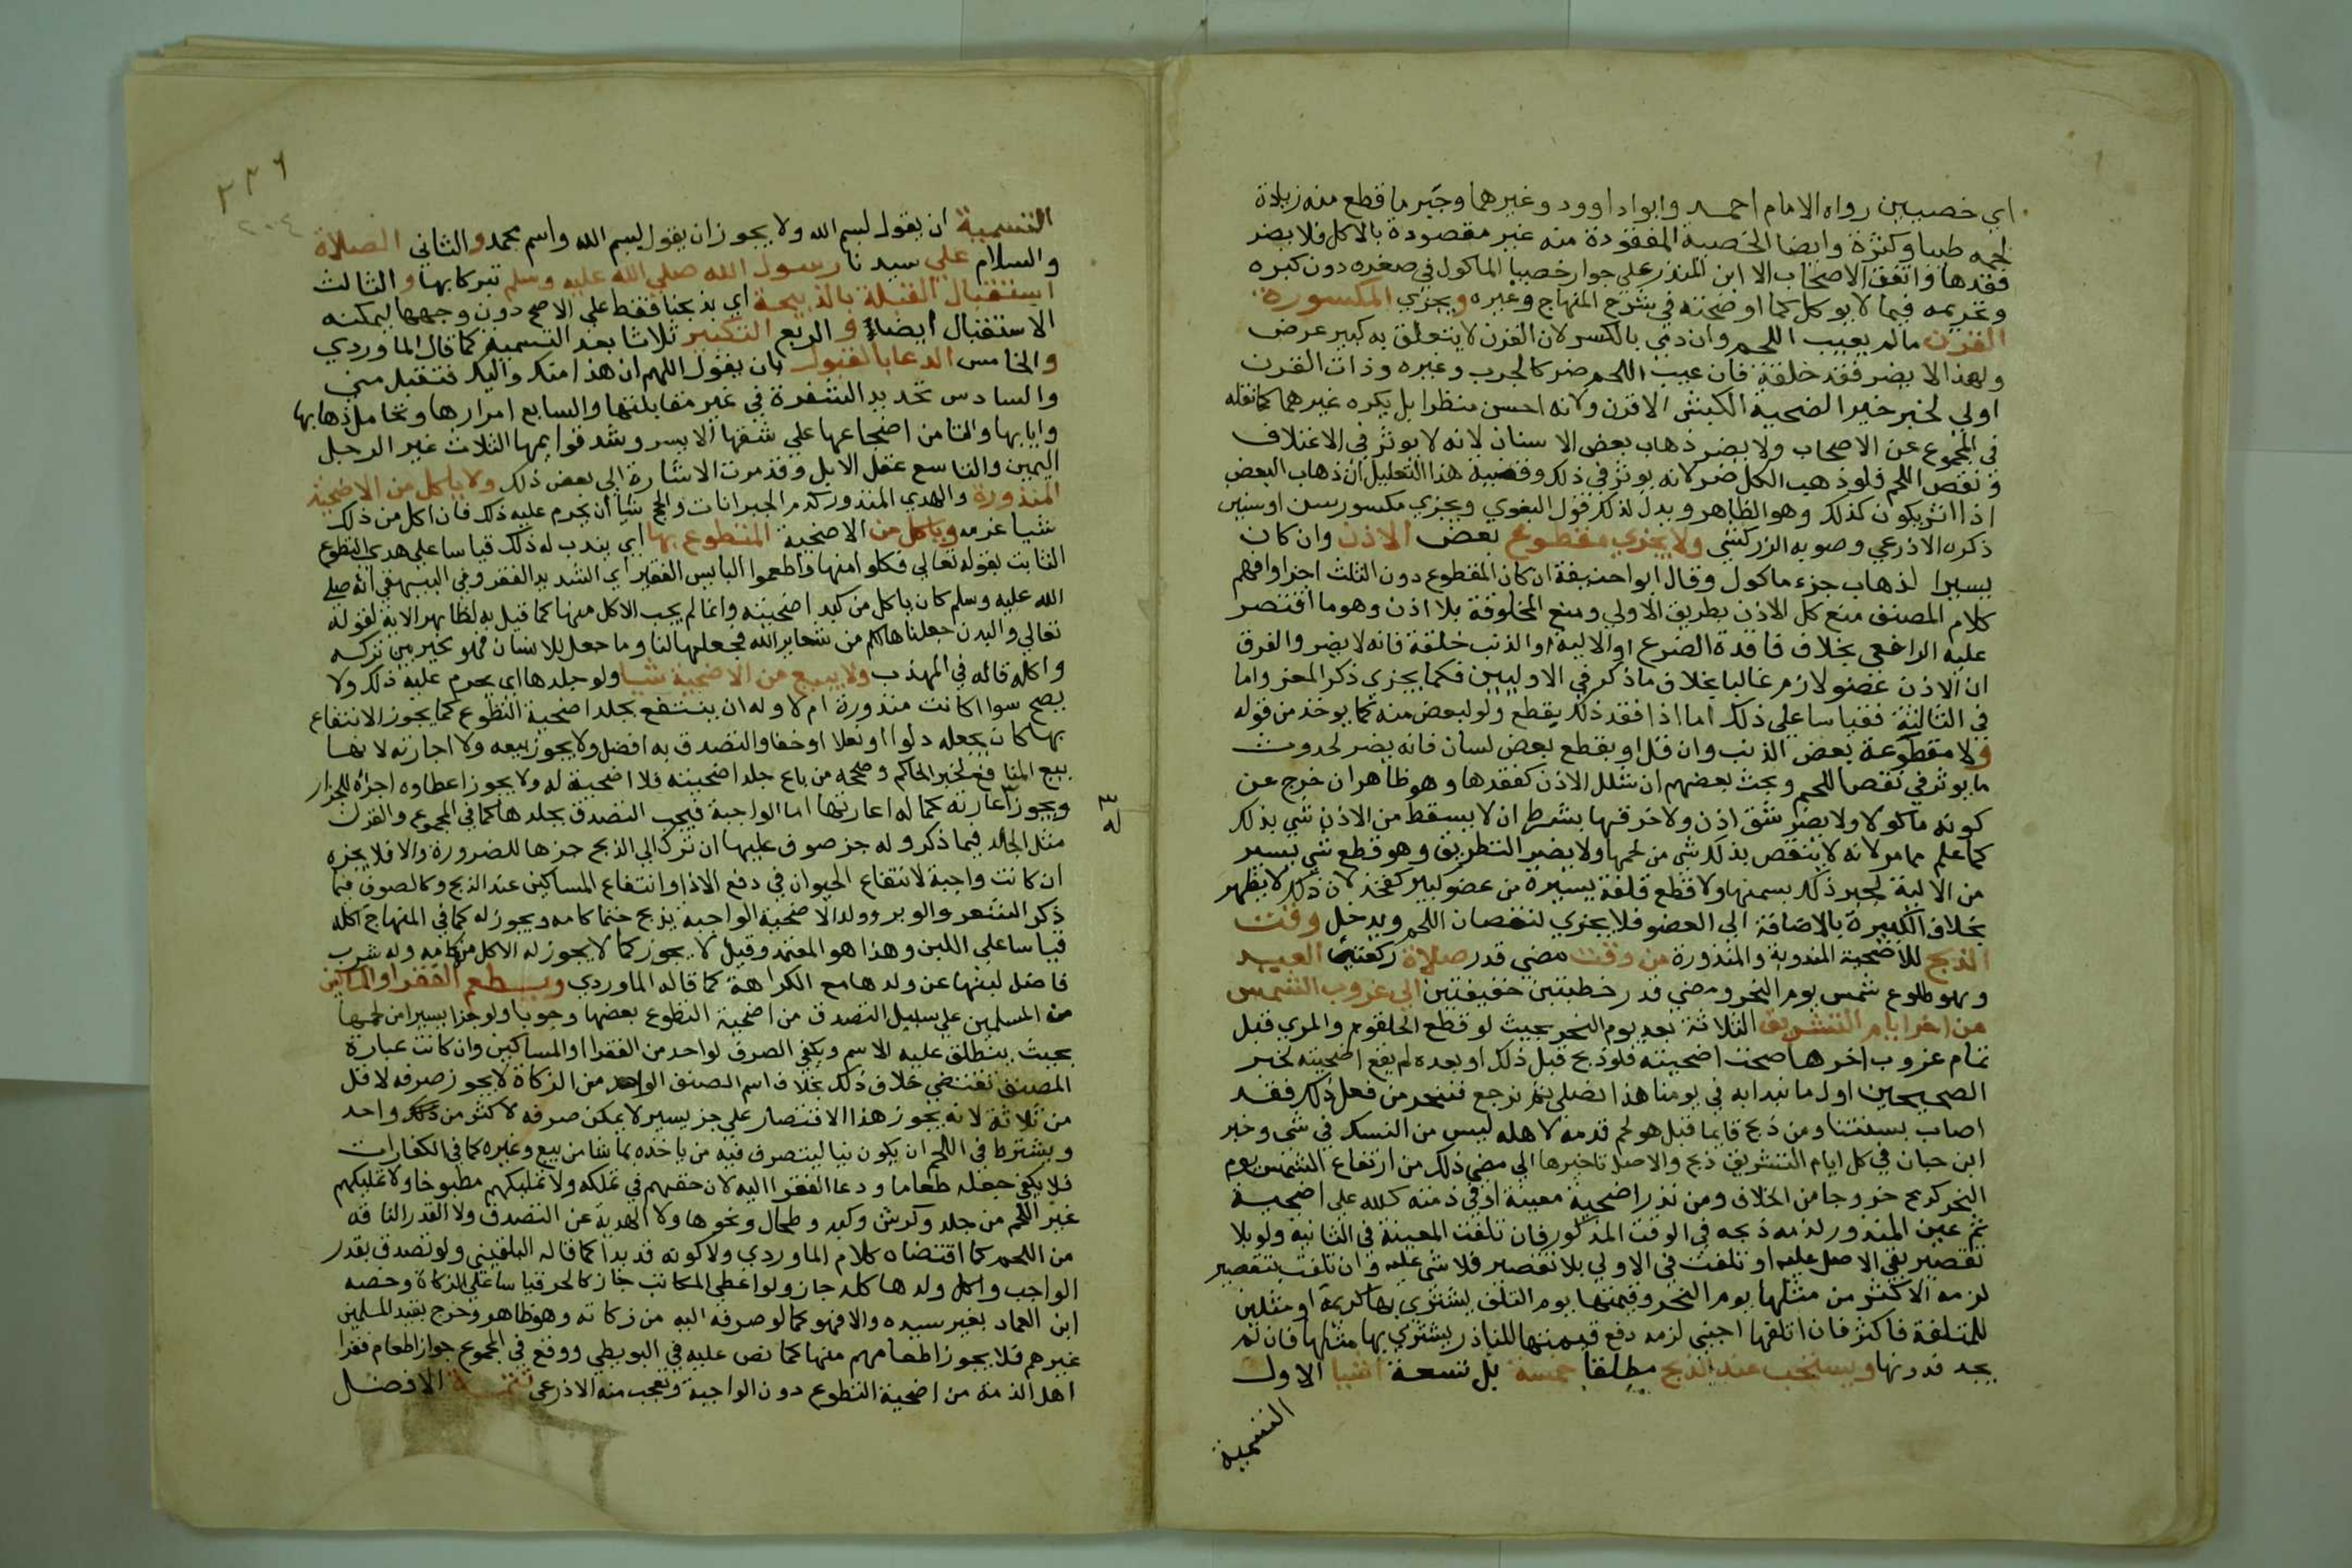 اي خصيين رواه الامام احمد وابواداوود وغيرهما وجبر ما قطع منه زيادة
لحمه طيبا وكثرة وايضا الخصية المفقودة منه غير مقصودة بالاكل فلا يضر
فقدها واتفق الاصحاب الا ابن المنذر علي جواز خصيا الماكول في صغره دون كبره
وتحريمه فيما لا يوكل كما اوضحته في شرح المنهاج وغيره ويجزي المكسورة
القرن مالم يعيب اللحم وان دمي بالكسر لان القرن لا يتعلق به كبير عرض
ولهذا لا يضر فقد خلقة فان عيب اللحم ضر كالجرب وغيره وذات القرن
اولي لخبر خير الضحية الكبش الاقرن ولانه احسن منظرا بل يكره غيرهما كما نقله
في المجموع عن الاصحاب ولا يضر ذهاب بعض الاسنان لانه لا يوثر في الاعتلاف
ونقص اللحم فلو ذهب الكل ضر لانه يوثر في ذلك وقضية هذا التعليل ان ذهاب البعض
اذا اثر يكون كذلك وهو الظاهر ويدل لذلك قول البغوي ويجزي مكسور سن او سنين
ذكره الاذرعي وصوبه الزركشي ولا يجزي مقطوع بعض الاذن وان كان
يسيرا لذهاب جزء ماكول وقال ابو احنيفة ان كان المقطوع دون الثلث اجزا وافهم
كلام المصنف منع كل الاذن بطريق الاولي ومنع المخلوقة بلا اذن وهو ما اقتصر
عليه الرافعي بخلاف فاقدة الضرع او الالية او الذنب خلقة فانه لا يضر والفرق
ان الاذن عضو لازم غالبا بخلاف ما ذكر في الاوليين فكما يجزي ذكر المعز واما
في الثالثة فقياسا علي ذلك اما اذا فقد ذلك بقطع ولو لبعض منه كما يوخذ من قوله
ولا مقطوعة بعض الذنب وان قل او بقطع بعض لسان فانه يضر لحدوث
ما يوثر في نقص اللحم وبحث بعضهم ان شلل الاذن كفقدها وهو ظاهر ان خرج عن
كونه ماكولا ولا يضر شق اذن ولا خرقها بشرط ان لا يسقط من الاذن شي بذلك
كما علم مما مر لانه لا ينقص بذلك شي من لحمها ولا يضر التطريق وهو قطع شي يسير
من الالية لجبر ذلك بسمنها ولا قطع فلقة يسيرة من عضو كبير كفخذ لان ذلك لا يظهر
بخلاف الكبيرة بالاضافة الي العضو فلا يجزي لنقصان اللحم ويدخل وقت
الذبح للاضحية المندوبة والمنذورة من وقت مضي قدر صلاة ركعتي العيد
وهو طلوع شمس يوم النحر ومضي قدر خطبتين خفيفتين الي غروب الشمس
من اخر ايام التشريق الثلاثة بعد يوم النحر بحيث لو قطع الحلقوم والمري قبل
تمام غروب اخرها صحت اضحيته فلو ذبح قبل ذلك او بعده لم يقع اضحيته لخبر
الصحيحين اول ما نبدا به في يومنا هذا نصلي ثم نرجع فننحر من فعل ذلك فقد
اصاب بسنتنا ومن ذبح قابما قبل هو لحم قدمه لاهله ليس من النسك في شي وخبر
ابن حبان في كل ايام التشريق ذبح والاصل تاخيرها الي مضي ذلك من ارتفاع الشمس يوم
النحر كرمح خروجا من الخلاف ومن نذر اضحية معينة او في ذمته كلله علي اضحية
ثم عين المنذور لزمه ذبحه في الوقت المذكور فان تلفت المعينة في الثانية ولو بلا
تقصير بقي الاصل عليه او تلفت في الاولي بلا تقصير فلا شي عليه وان تلفت بتقصير
لزمه الاكثر من مثلها يوم النحر وقيمتها يوم التلف ليشتري بها كريمة او مثلين
للمتلفة فاكثر فان اتلفها اجنبي لزمه دفع قيمتها للناذر يشتري بها مثلها فان لم
يجد فدونها ويستحب عند الذبح مطلقا خمسة بل تسعة اشيا الاول
التسمية
٢٣٦
٢٠٤
التسمية ان يقول بسم الله ولا يجوز ان يقول بسم الله واسم محمد والثاني الصلاة
والسلام علي سيدنا رسول الله صلي الله عليه وسلم تبركا بها والثالث
استقبال القبلة بالذبيحة اي بذبحنا فقط علي الاصح دون وجهها ليمكنه
الاستقبال ايضا والربع التكبير ثلاثا بعد التسمية كما قال الماوردي
والخامس الدعا بالقبول بان يقول اللهم ان هذا منك واليك فتقبل مني
والسادس تحديد الشفرة في غير مقابلتها والسابع امرارها وتحامل ذهابها
وايابها والثامن اضجاعها علي شقها الايسر وشد قوايمها الثلاث غير الرجل
اليمين والتاسع عقل الابل وقد مرت الاشارة الي بعض ذلك ولا ياكل من الاضحية
المنذورة والهدي المنذور كدم الجبرانات والحج شيا اي يحرم عليه ذلك فان اكل من ذلك
شيا غرمه وياكل من الاضحية المتطوع بها اي يندب له ذلك قياسا علي هدي التطوع
الثابت بقوله تعالي فكلوا منها واطعموا البايس الفقير اي الشديد الفقر وفي البيهقي انه صلي
الله عليه وسلم كان ياكل من كبد اضحيته وانما لم يجب الاكل منها كما قيل به لظاهر الاية لقوله
تعالي والبدن جعلناها لكم من شعاير الله فجعلها لنا وما جعل للانسان فهو مخير بين تركه
واكله قاله في المهذب ولا يبيع من الاضحية شيا ولو جلدها اي يحرم عليه ذلك ولا
يصح سوا اكانت منذورة ام لا وله ان ينتفع بجلد اضحية التطوع كما يجوز الانتفاع
بها كان يجعله دلوا او نعلا او خفا والتصدق به افضل ولا يجوز بيعه ولا اجارته لانها
بيع المنافع لخبر الحاكم وصححه من باع جلد اضحيته فلا اضحية له ولا يجوز اعطاوه اجرة للجزار
ويجوز اعارته كما له اعارتها اما الواجبة فيجب التصدق بجلدها كما في المجموع والقرن
مثل الجلد فيما ذكر وله جز صوف عليها ان ترك الي الذبح جزها للضرورة والا فلا يجزه
ان كانت واجبة لانتفاع الحيوان في دفع الاذا وانتفاع المساكين عند الذبح وكالصوف فيما
ذكر الشعر والوبر وولد الاضحية الواجبة يذبح حتما كامه ويجوز له كما في المنهاج اكله
قياسا علي اللبن وهذا هو المعتمد وقيل لا يجوز كما لا يجوز له الاكل من امه وله شرب
فاضل لبنها عن ولدها مع الكراهة كما قاله الماوردي ويطعم الفقرا والمساكين
من المسلمين علي سبيل التصدق من اضحية التطوع بعضها وجوبا ولو جزا يسيرا من لحمها
بحيث ينطلق عليه الاسم ويكفي الصرف لواحد من الفقرا او المساكين وان كانت عبارة
المصنف تقتضي خلاف ذلك بخلاف اسم الصنف الواحد من الزكاة لا يجوز صرفه لاقل
من ثلاثة لانه يجوز هذا الاقتصار علي جز يسير لا يمكن صرفه لاكثر من واحد
ويشترط في اللحم ان يكون نيا ليتصرف فيه من ياخذه بما شا من بيع وغيره كما في الكفارات
فلا يكفي جعله طعاما ودعا الفقرا اليه لان حقهم في تملكه ولا تمليكهم مطبوخا ولا تمليكهم
غير اللحم من جلد وكرش وكبد وطحال ونحوها ولا الهدية عن التصدق ولا القدر التافه
من اللحم كما اقتضاه كلام الماوردي ولا كونه قديدا كما قاله البلقيني ولو تصدق بقدر
الواجب واكل ولدها كله جاز ولو اعطي المكاتب جاز كالحر قياسا علي الزكاة وخصه
ابن العماد بغير سيده والا فهو كما لو صرفه اليه من زكاته وهو ظاهر وخرج بقيد المسلمين
غيرهم فلا يجوز اطعامهم منها كما نص عليه في البويطي ووقع في المجموع جواز اطعام فقرا
اهل الذمة من اضحية التطوع دون الواجبة وتعجب منه الاذرعي تتمة الافضل